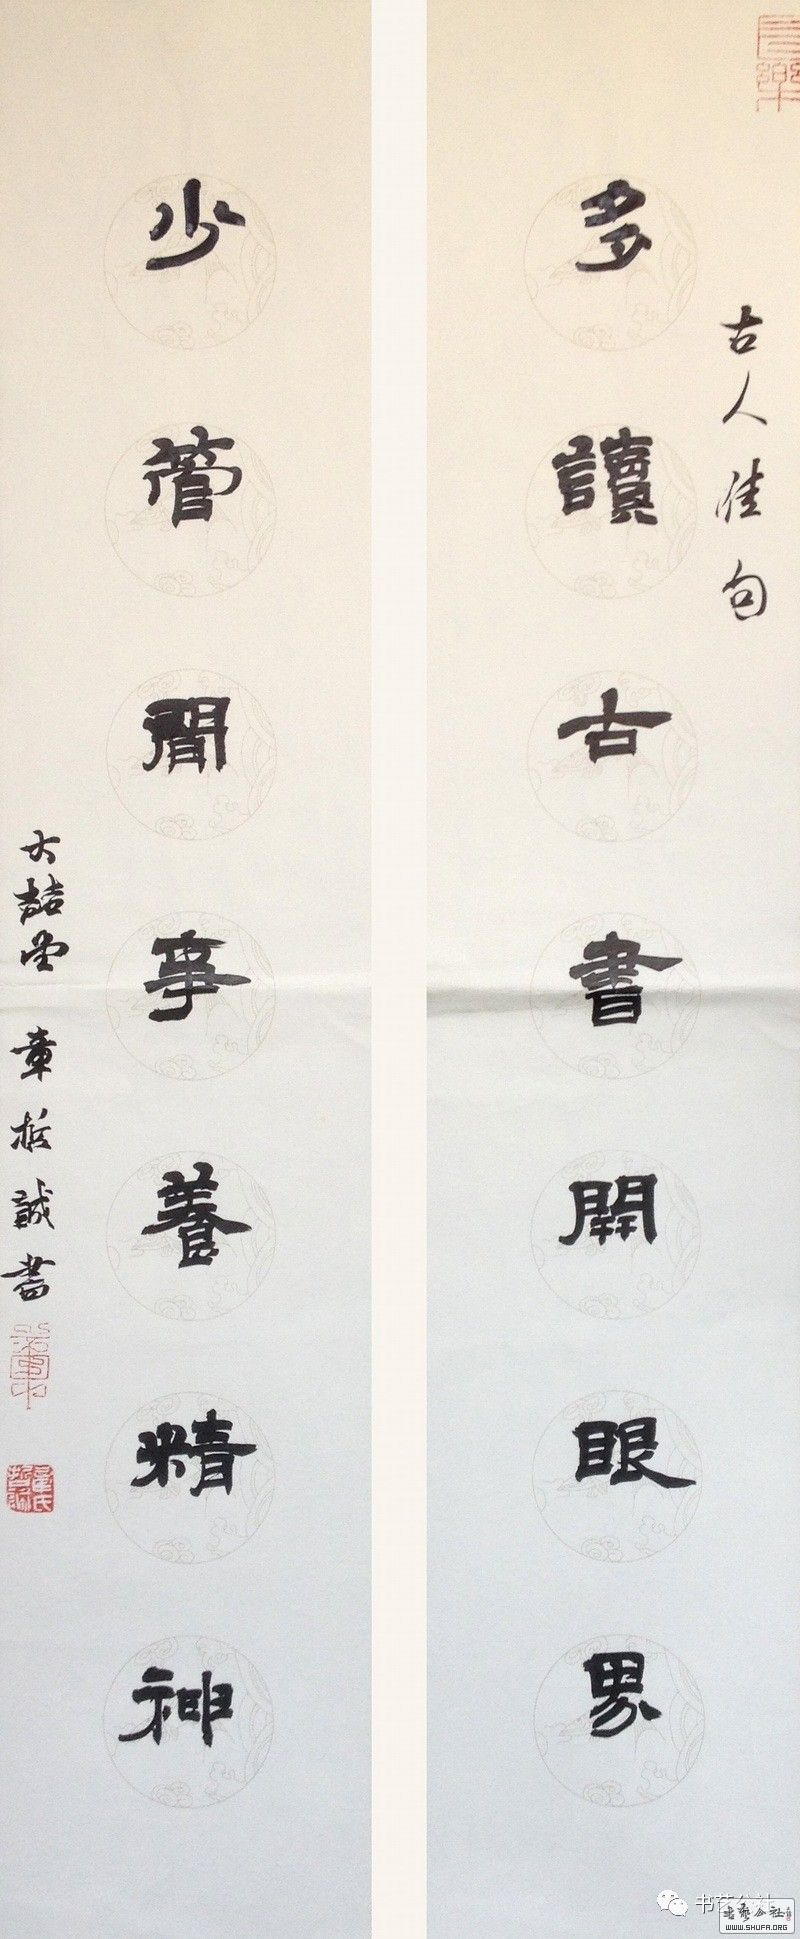 古人佳句
多讀古書開眼界
少管閒事養精神
大喆堂 章哲誠書
书艺公社
书艺公社
WWW.SHUFA.ORG